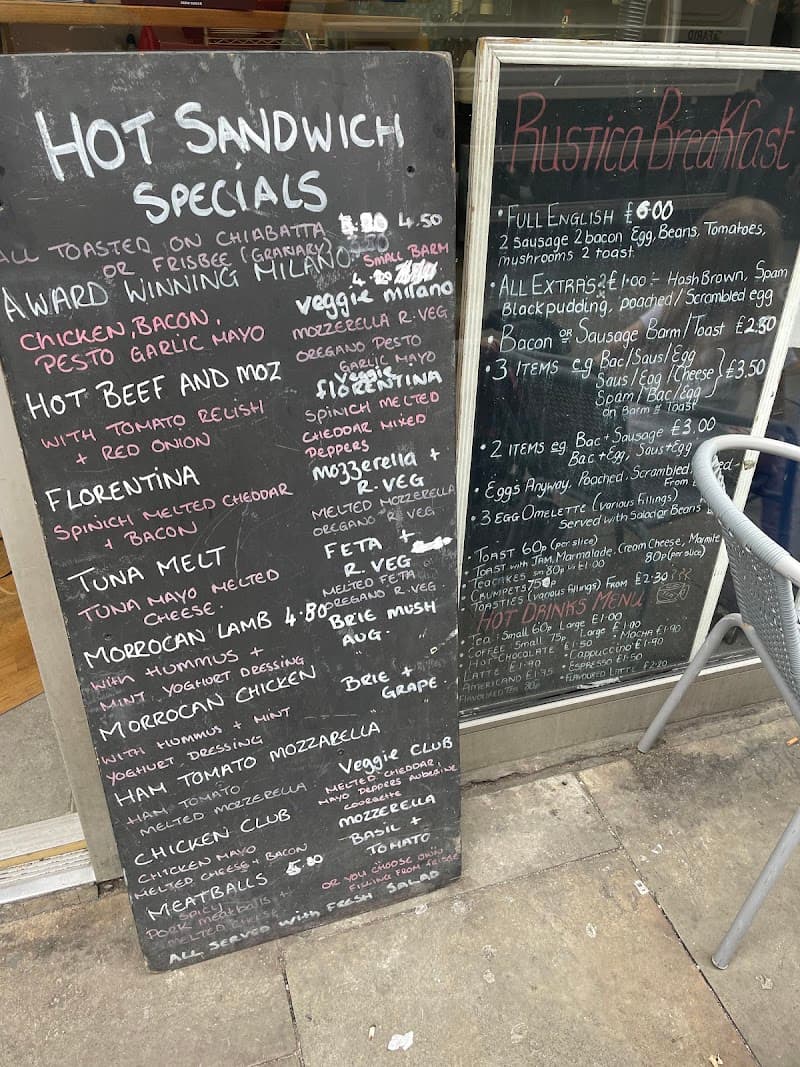 HOT SANDWICH
SPECIALS
ALL TOASTED ON CHIABATTA 4.50
OR FRISBEE (GRANARY)
SMALL BARM
AWARD WINNING MILANO
CHICKEN, BACON,
PESTO GARLIC MAYO
HOT BEEF AND MOZ
WITH TOMATO RELISH
+ RED ONION
FLORENTINA
SPINICH MELTED CHEDDAR
+ BACON
TUNA MELT
TUNA MAYO MELTED
CHEESE.
MORROCAN LAMB 4.80
WITH HUMMUS +
MINT YOGHURT DRESSING
MORROCAN CHICKEN
WITH HUMMUS + MINT
YOGHURT DRESSING
HAM TOMATO MOZZARELLA
HAM TOMATO
MELTED MOZZERELLA
CHICKEN CLUB
CHICKEN MAYO
MELTED CHEESE + BACON
MEATBALLS 5.80
SPICY
PORK MEATBALLS +
MELTED CHEESE
veggie milano
MOZZERELLA R.VEG
OREGANO PESTO
GARLIC MAYO
veggie
FLORENTINA
SPINICH MELTED
CHEDDAR MIXED
PEPPERS
MOZZERELLA +
R.VEG
MELTED MOZZERELLA
OREGANO R.VEG
FETA +
R.VEG
MELTED FETA
OREGANO R.VEG
BRIE MUSH
AUG.
BRIE +
GRAPE.
Veggie CLUB
MELTED CHEDDAR,
MAYO PEPPERS AUBERGINE
COURGETTE
MOZZERELLA
BASIL +
TOMATO
OR YOU CHOOSE OWN
FILLING FROM FRIDGE
ALL SERVED WITH FRESH SALAD
Rustica Breakfast
• FULL ENGLISH £6.00
2 sausage 2 bacon Egg, Beans, Tomatoes,
mushrooms 2 toast
• ALL EXTRAS £1.00 - Hash Brown, Spam
Black pudding, poached/Scrambled egg
• Bacon OR Sausage Barm/Toast £2.80
• 3 ITEMS eg Bac/Saus/Egg
Saus/Egg/Cheese £3.50
Spam/Bac/Egg
on Barm or Toast
• 2 ITEMS eg. Bac + Sausage £3.00
Bac + Egg, Saus + Egg
• Eggs Anyway, Poached, Scrambled,
From
• 3 EGG Omelette (various fillings)
Served with Salad or Beans
• TOAST 60p (per slice)
• TOAST with JAM, Marmalade, Cream Cheese, Marmite
80p (per slice)
• TEACAKES sm 80p LG £1.00
• CRUMPETS 75p
• TOASTIES (various fillings) From £2.30
HOT DRINKS MENU
• TEA: Small 60p Large £1.00
• COFFEE Small 75p Large £1.00
• HOT CHOCOLATE £1.50 • MOCHA £1.90
• LATTE £1.90 • Cappuccino £1.90
• AMERICANO £1.95 • ESPRESSO £1.50
• FLAVOURED TEA 80p • FLAVOURED LATTE £2.20